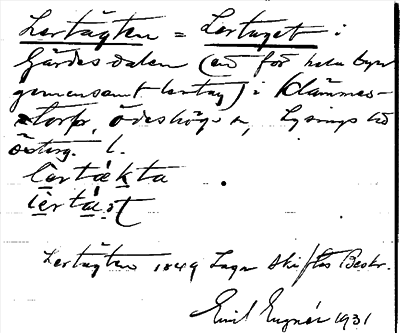 Lertägten = Lertaget i
Gärdesdalen (ett för hela byn
gemensamt lertag) i Klämmes-
torp, Ödeshögs sn, Lysings hd
Österg. l.
lertäkta
lertá
Lertägten 1849 Laga Skiftes Beskr.
Emil 1931